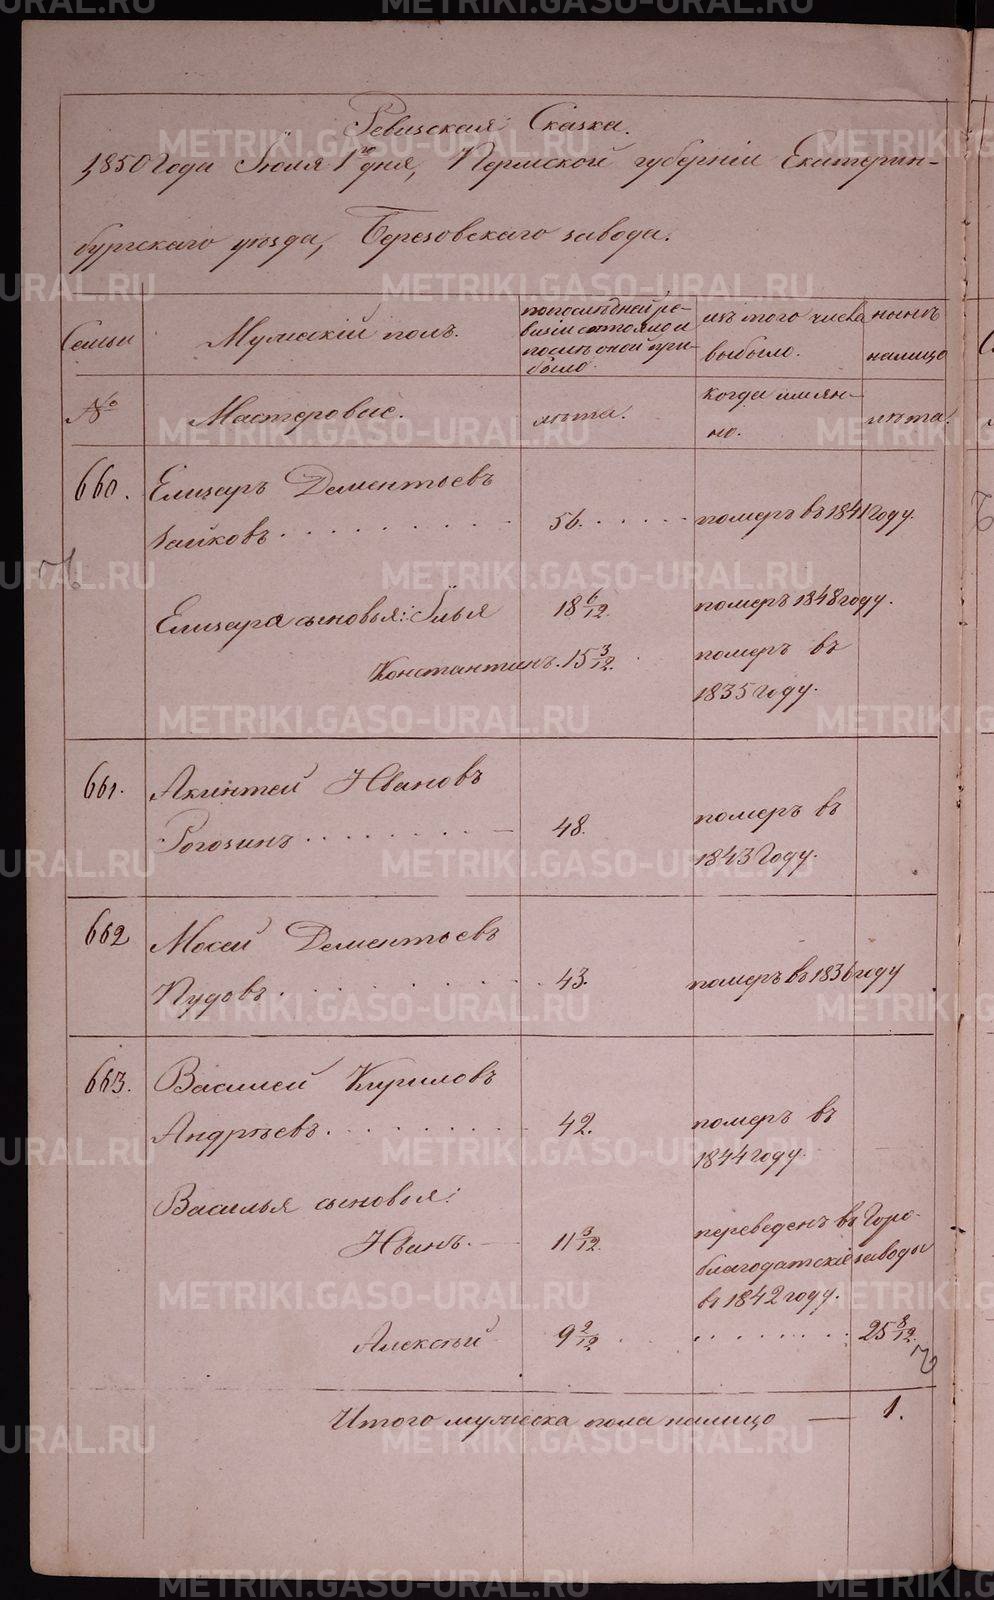 Ревизская Сказка.
1850 Года Іюля 1го дня, Пермской губерніи Екатерин-
бургскаго уѣзда, Березовскаго завода.
Семьи
Мужескій полъ.
попослѣдней ре-
визіи состояло и
послѣ оной при-
было.
изъ того числа
выбыло.
нынѣ
налицо
№
Мастеровые.
лѣта.
когда имян-
но.
лѣта.
660. Елизаръ Дементьевъ
Зайковъ . . . . . . . . . 56. . . . . . померъ въ 1841 году.
Елизара сыновья: Илья 18 6/12. померъ 1848 году.
Константинъ. 15 3/12. померъ въ
1835 году.
661. Акинтей Ивановъ
Рогозинъ . . . . . . . — 48. померъ въ
1843 Году.
662 Мосей Дементьевъ
Пудовъ . . . . . . . . . 43. померъ въ 1836 году
663. Василей Кириловъ
Андрѣевъ . . . . . . . . 42. померъ въ
1844 году.
Василья сыновья:
Иванъ. — 11 3/12. переведенъ въ Горо-
благодатскіе заводы
въ 1842 году.
Алексѣй 9 2/12 . . . . . . . . . 25 8/12.
Итого мужеска пола налицо — 1.
METRIKI.GASO-URAL.RU